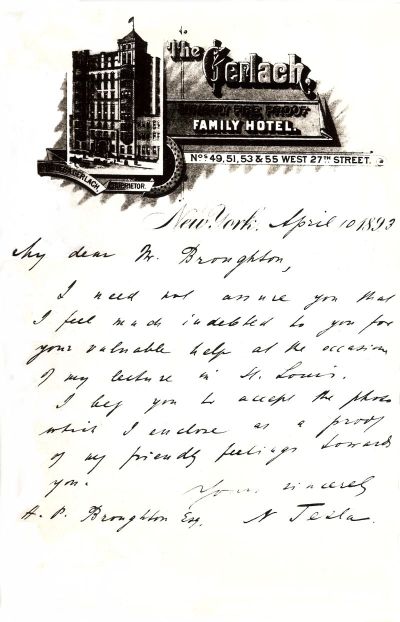 The Gerlach.
FIRE PROOF
FAMILY HOTEL.
Nos. 49, 51, 53 & 55 WEST 27TH STREET.
GERLACH, PROPRIETOR.
New York, April 10 1893
My dear Mr. Broughton,
I need not assure you that
I feel much indebted to you for
your valuable help at the occasion
of my lecture in St. Louis.
I beg you to accept the photo
which I enclose as a proof
of my friendly feelings towards
you.
Yours sincerely
A. P. Broughton Esq. N Tesla.